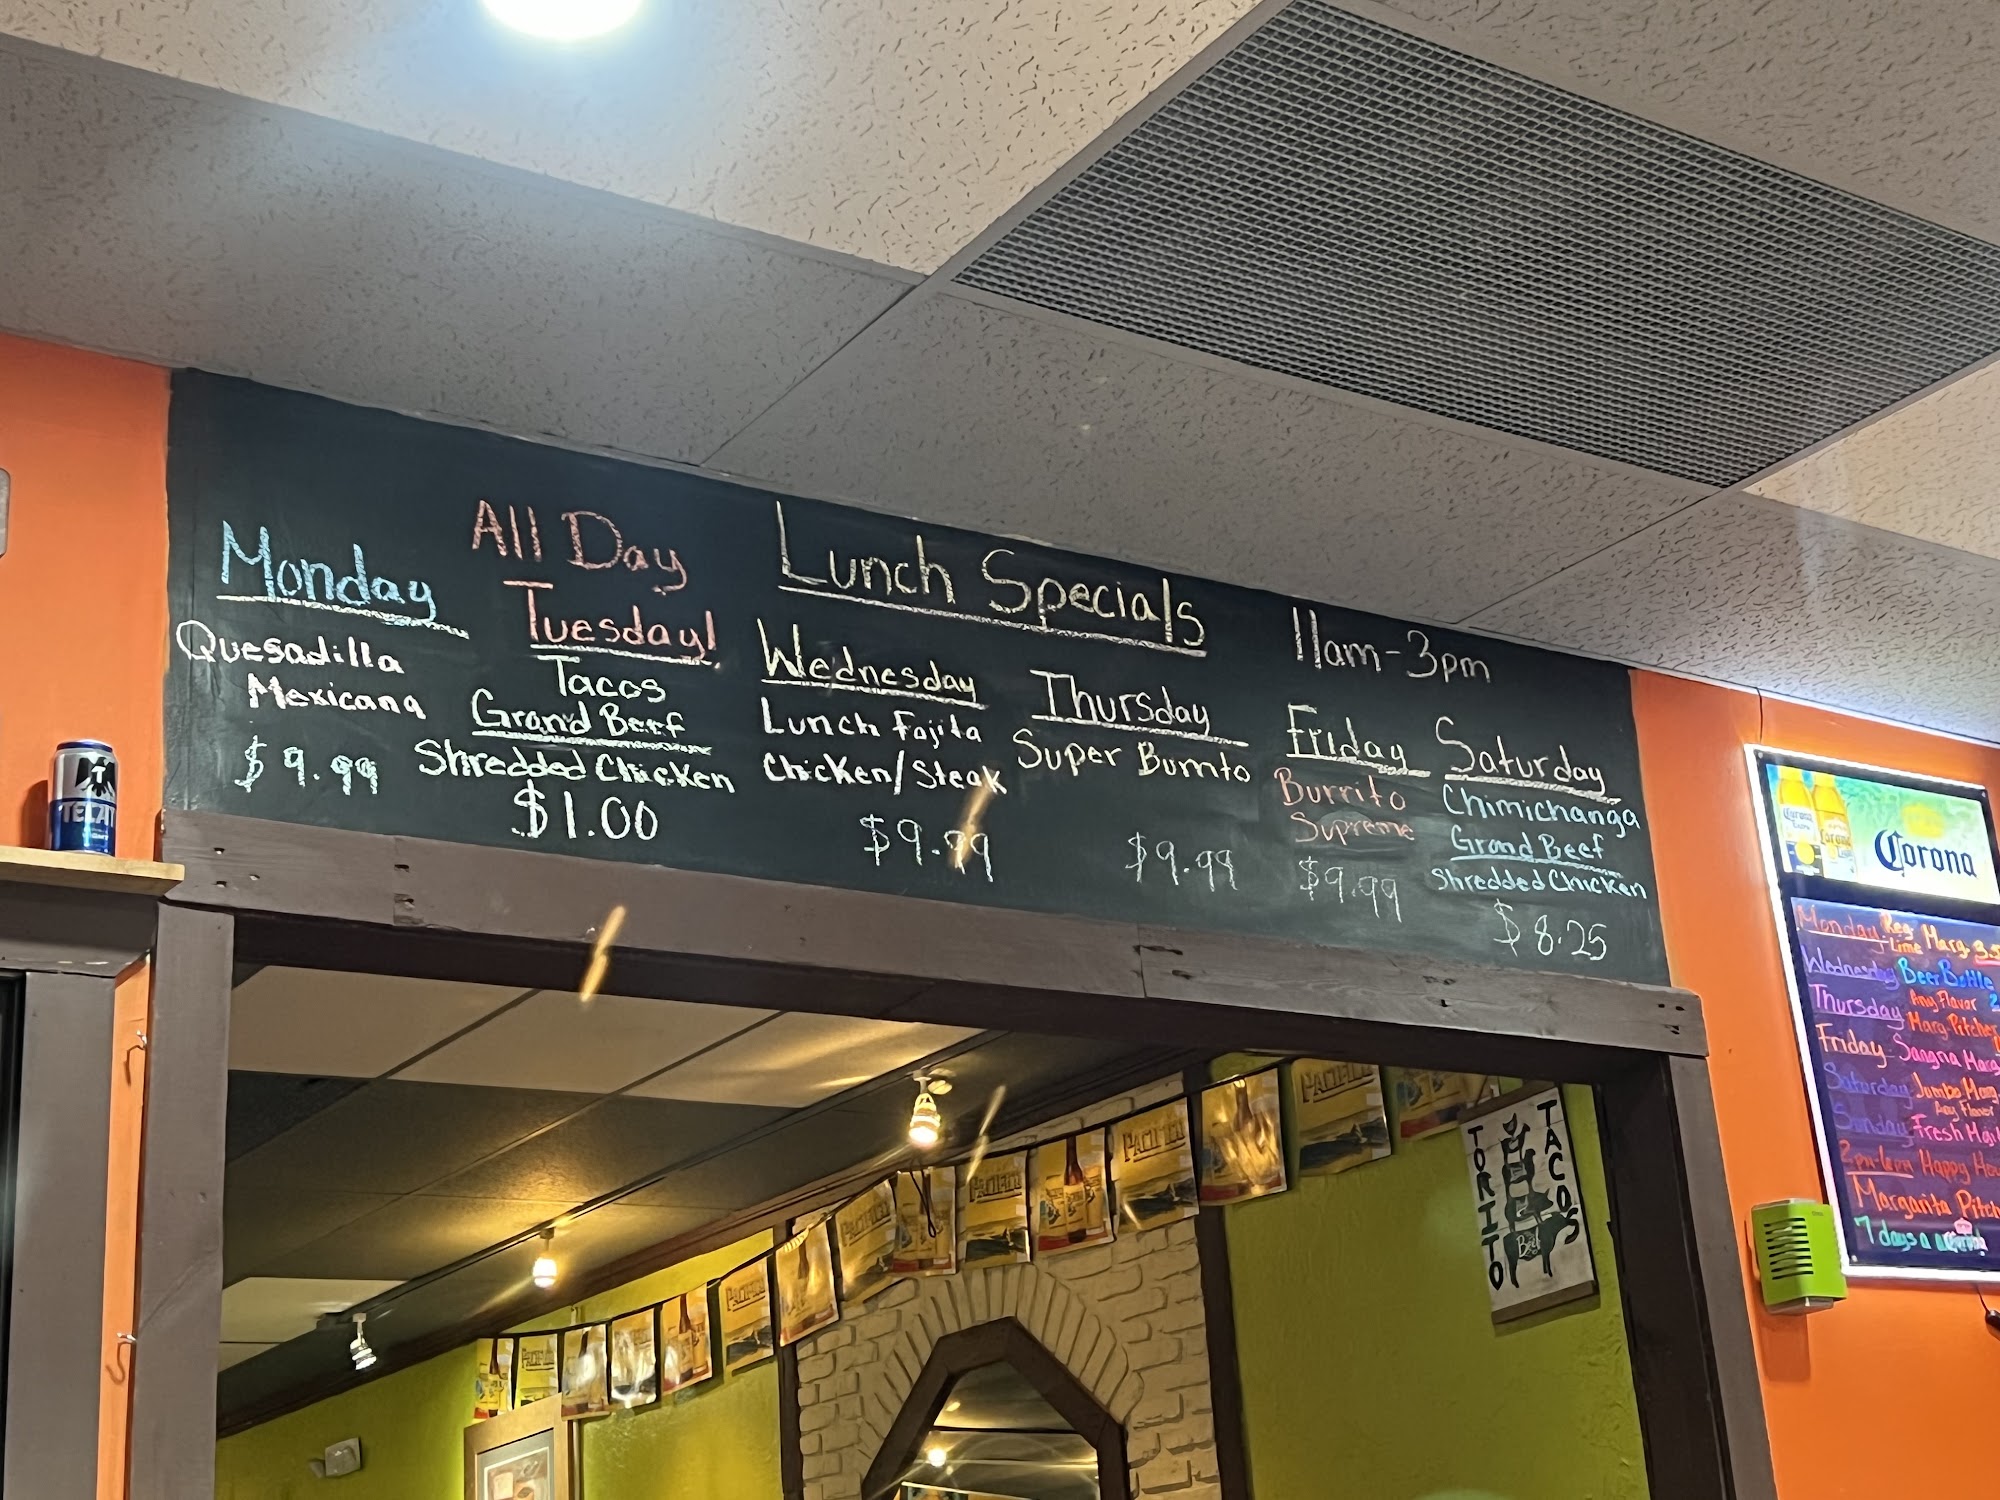 Lunch Specials
11am-3pm
Monday
Quesadilla
Mexicana
$9.99
All Day
Tuesday!
Tacos
Grand Beef
Shredded Chicken
$1.00
Wednesday
Lunch Fajita
Chicken/Steak
$9.99
Thursday
Super Burrito
$9.99
Friday
Burrito
Supreme
$9.99
Saturday
Chimichanga
Grand Beef
Shredded Chicken
$8.25
Corona
Monday Reg Marg. 3.5
Lime
Wednesday Beer Bottle
Thursday Any Flavor 2
Marg. Pitcher
Friday Sangria Marg
Saturday Jumbo Marg.
Any Flavor
Sunday Fresh Moji
2pm-6pm Happy Hou
Margarita Pitch
7 days a
TORITO
TACOS
Beef
PACIFICO
PACIFICO
PACIFICO
PACIFICO
TECAT